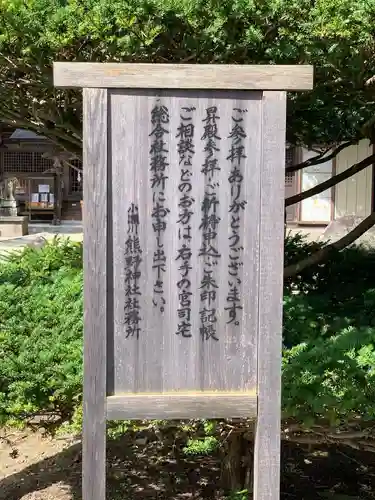 ご参拝ありがとうございます。
昇殿参拝・ご祈祷申込・ご朱印記帳
ご相談などのお方は右手の宮司宅
総合社務所にお申し出下さい。
熊野神社社務所